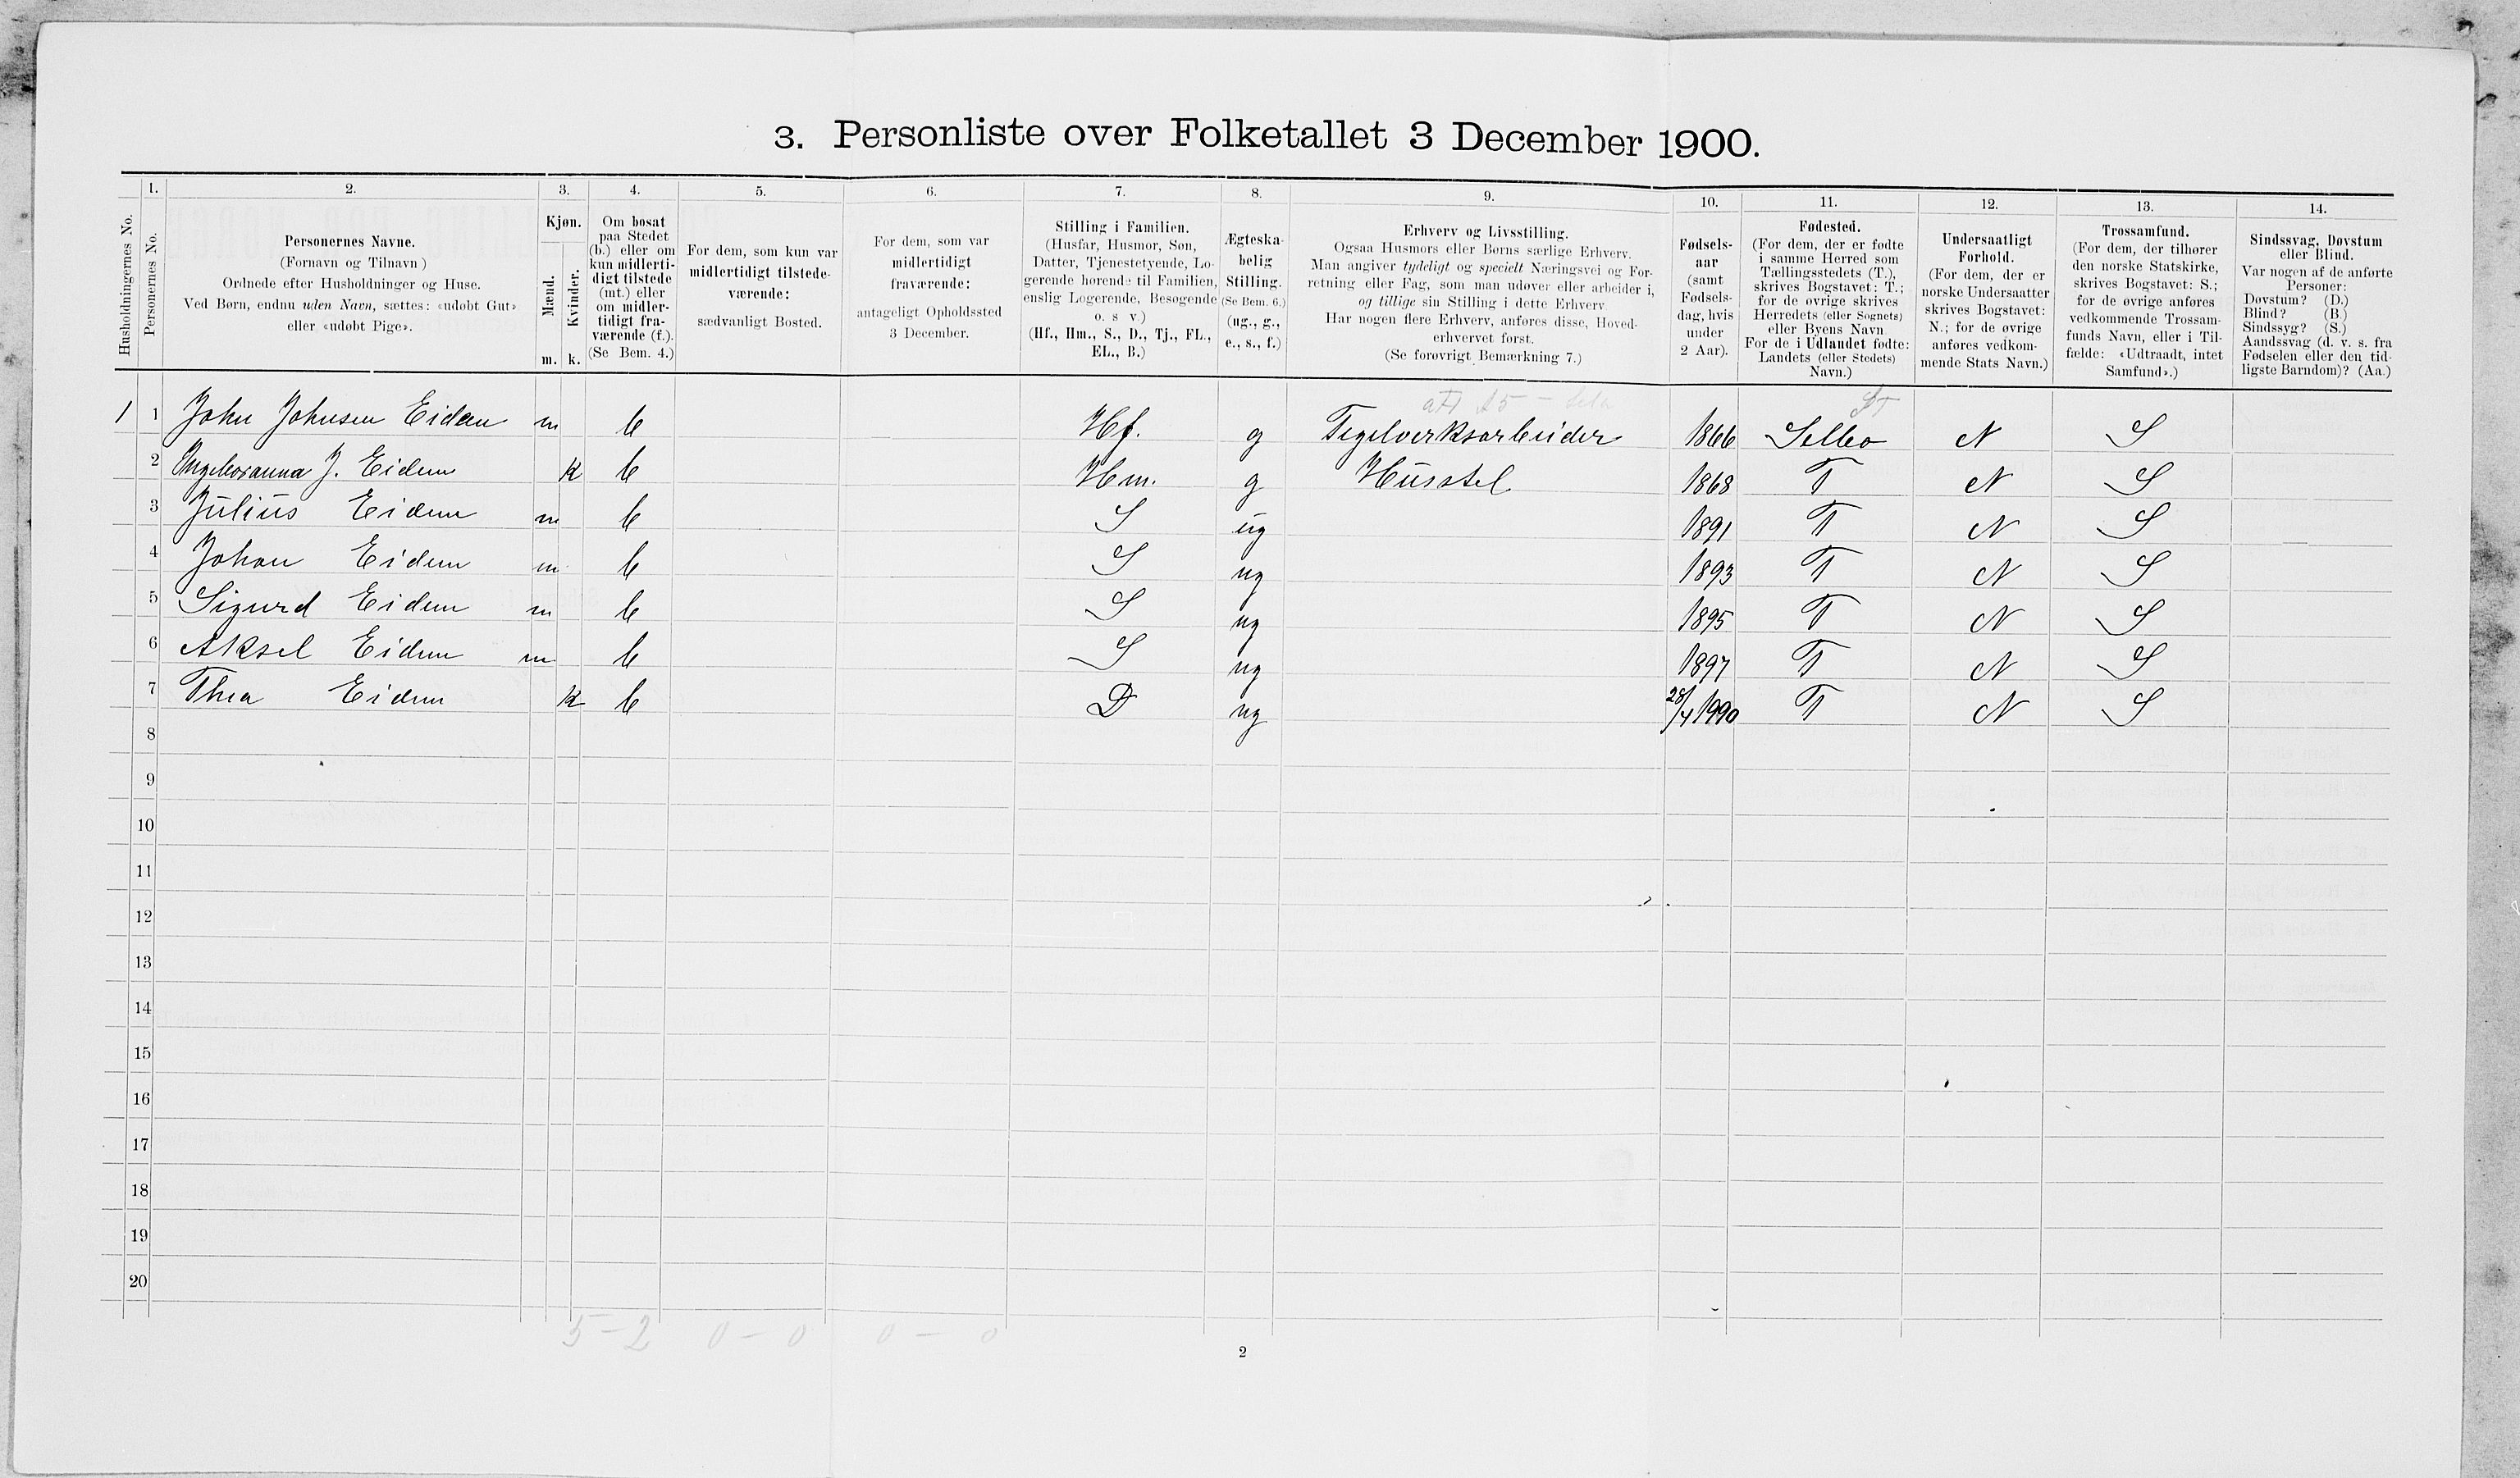 3. Personliste over Folketallet 3 December 1900.
1. 2. 3. 4. 5. 6. 7. 8. 9. 10. 11. 12. 13. 14.
Husholdningernes No.
Personernes No.
Personernes Navne.
(Fornavn og Tilnavn)
Ordnede efter Husholdninger og Huse.
Ved Børn, endnu uden Navn, sættes: «udøbt Gut»
eller «udøbt Pige».
Kjøn.
Mænd.
Kvinder.
m. k.
Om bosat
paa Stedet
(b.) eller om
kun midlerti-
digt tilstede
(mt.) eller
om midler-
tidigt fra-
værende (f.).
(Se Bem. 4.)
For dem, som kun var
midlertidigt tilstede-
værende:
sædvanligt Bosted.
For dem, som var
midlertidigt
fraværende:
antageligt Opholdssted
3 December.
Stilling i Familien.
(Husfar, Husmor, Søn,
Datter, Tjenestetyende, Lo-
gerende hørende til Familien,
enslig Logerende, Besøgende
o. s v.)
(Hf., Hm., S., D., Tj., FL.,
EL., B.)
Ægteska-
belig
Stilling.
(Se Bem. 6.)
(ug., g.,
e., s., f.)
Erhverv og Livsstilling.
Ogsaa Husmors eller Børns særlige Erhverv.
Man angiver tydeligt og specielt Næringsvei og For-
retning eller Fag, som man udøver eller arbeider i,
og tillige sin Stilling i dette Erhverv
Har nogen flere Erhverv, anføres disse, Hoved-
erhvervet først.
(Se forøvrigt Bemærkning 7.)
Fødsels-
aar
(samt
Fødsels-
dag, hvis
under
2 Aar).
Fødested.
(For dem, der er fødte
i samme Herred som
Tællingsstedets (T.),
skrives Bogstavet: T.;
for de øvrige skrives
Herredets (eller Sognets)
eller Byens Navn
For de i Udlandet fødte:
Landets (eller Stedets)
Navn.)
Undersaatligt
Forhold.
(For dem, der er
norske Undersaatter
skrives Bogstavet:
N.; for de øvrige
anføres vedkom-
mende Stats Navn.)
Trossamfund.
(For dem, der tilhører
den norske Statskirke,
skrives Bogstavet: S.;
for de øvrige anføres
vedkommende Trossam-
funds Navn, eller i Til-
fælde: «Udtraadt, intet
Samfund».)
Sindssvag, Døvstum
eller Blind.
Var nogen af de anførte
Personer:
Døvstum? (D.)
Blind? (B.)
Sindssyg? (S.)
Aandssvag (d. v. s. fra
Fødselen eller den tid-
ligste Barndom)? (Aa.)
ST
1 1 John Johnsen Eidem m b Hf. g Tegelverksarbeider 1866 Selbo N S
2 Ingeboranna J. Eidem k b Hm. g Husstel 1868 T N S
3 Julius Eidem m b S ug 1891 T N S
4 Johan Eidem m b S ug 1893 T N S
5 Sigurd Eidem m b S ug 1895 T N S
6 Aksel Eidem m b S ug 1897 T N S
7 Thea Eidem k b D ug 28/4 1990 T N S
8
9
10
11
12
13
14
15
16
17
18
19
20
5 - 2 0 - 0 0 - 0
2